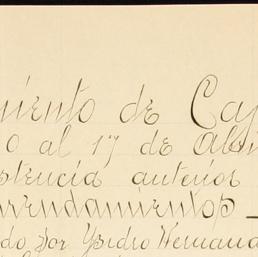 miento de Ca
o al 17 de Abri
stencia anterior
rrendamientos
do por Ysidro Hernand